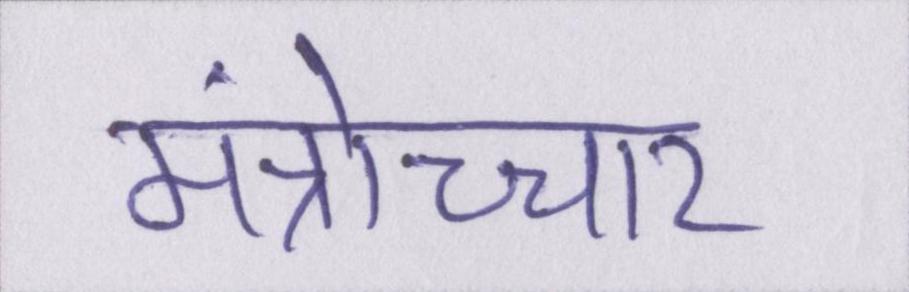 मंत्रोच्चार